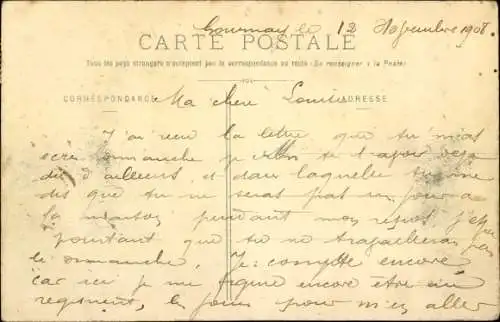 Gournay le 12 Novembre 1908
CARTE POSTALE
Tous les pays étrangers n'acceptent pas la correspondance au recto (Se renseigner à la Poste)
CORRESPONDANCE
ADRESSE
Ma chère Louise
J'ai reçu la lettre que tu m'as
dimanche
d'ailleurs, et dans laquelle tu me
dis que tu ne seras pas
la maison pendant mon repos, j'espère
pourtant que tu ne travailleras pas
le dimanche. Je compte encore
car ici je me figure encore être au
régiment, les jours pour m'en aller